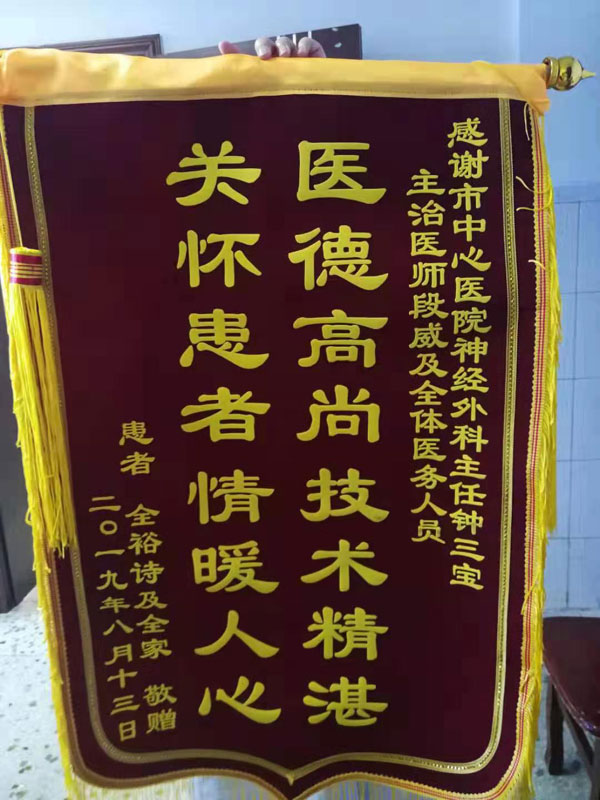 感谢市中心医院神经外科主任钟三宝
主治医师段威及全体医务人员
医德高尚技术精湛
关怀患者情暖人心
患者 全裕诗及全家 敬赠
二〇一九年八月十三日